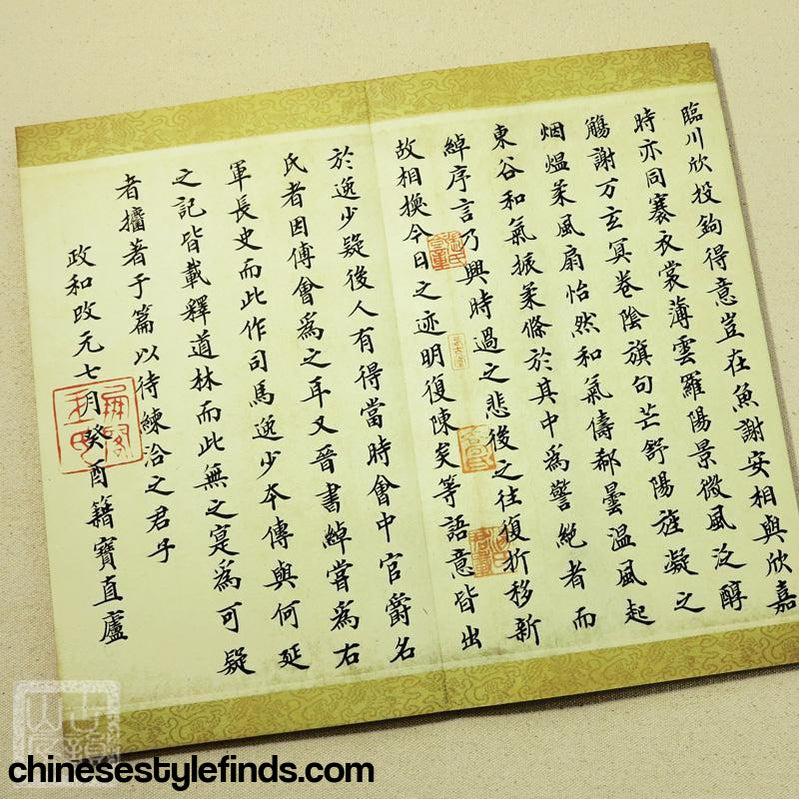 臨川欣投鉤得意豈在魚謝安相與欣嘉
時亦同褰衣裳薄雲羅陽景微風泛醇
觴謝万玄冥卷陰旗句芒舒陽旌凝之
烟煴柔風扇怡然和氣儔郗曇溫風起
東谷和氣振柔條於其中為警絕者而
綽序言乃興時過之悲後之往復折移新
故相換今日之迹明復陳矣等語意皆出
於逸少疑後人有得當時會中官爵名
氏者因傅會為之耳又晉書綽嘗為右
軍長史而此作司馬逸少本傳與何延
之記皆載釋道林而此無之寔為可疑
者擂著于篇以待練洽之君乎
政和改元七月癸酉籍寶直廬
chinesestylefinds.com